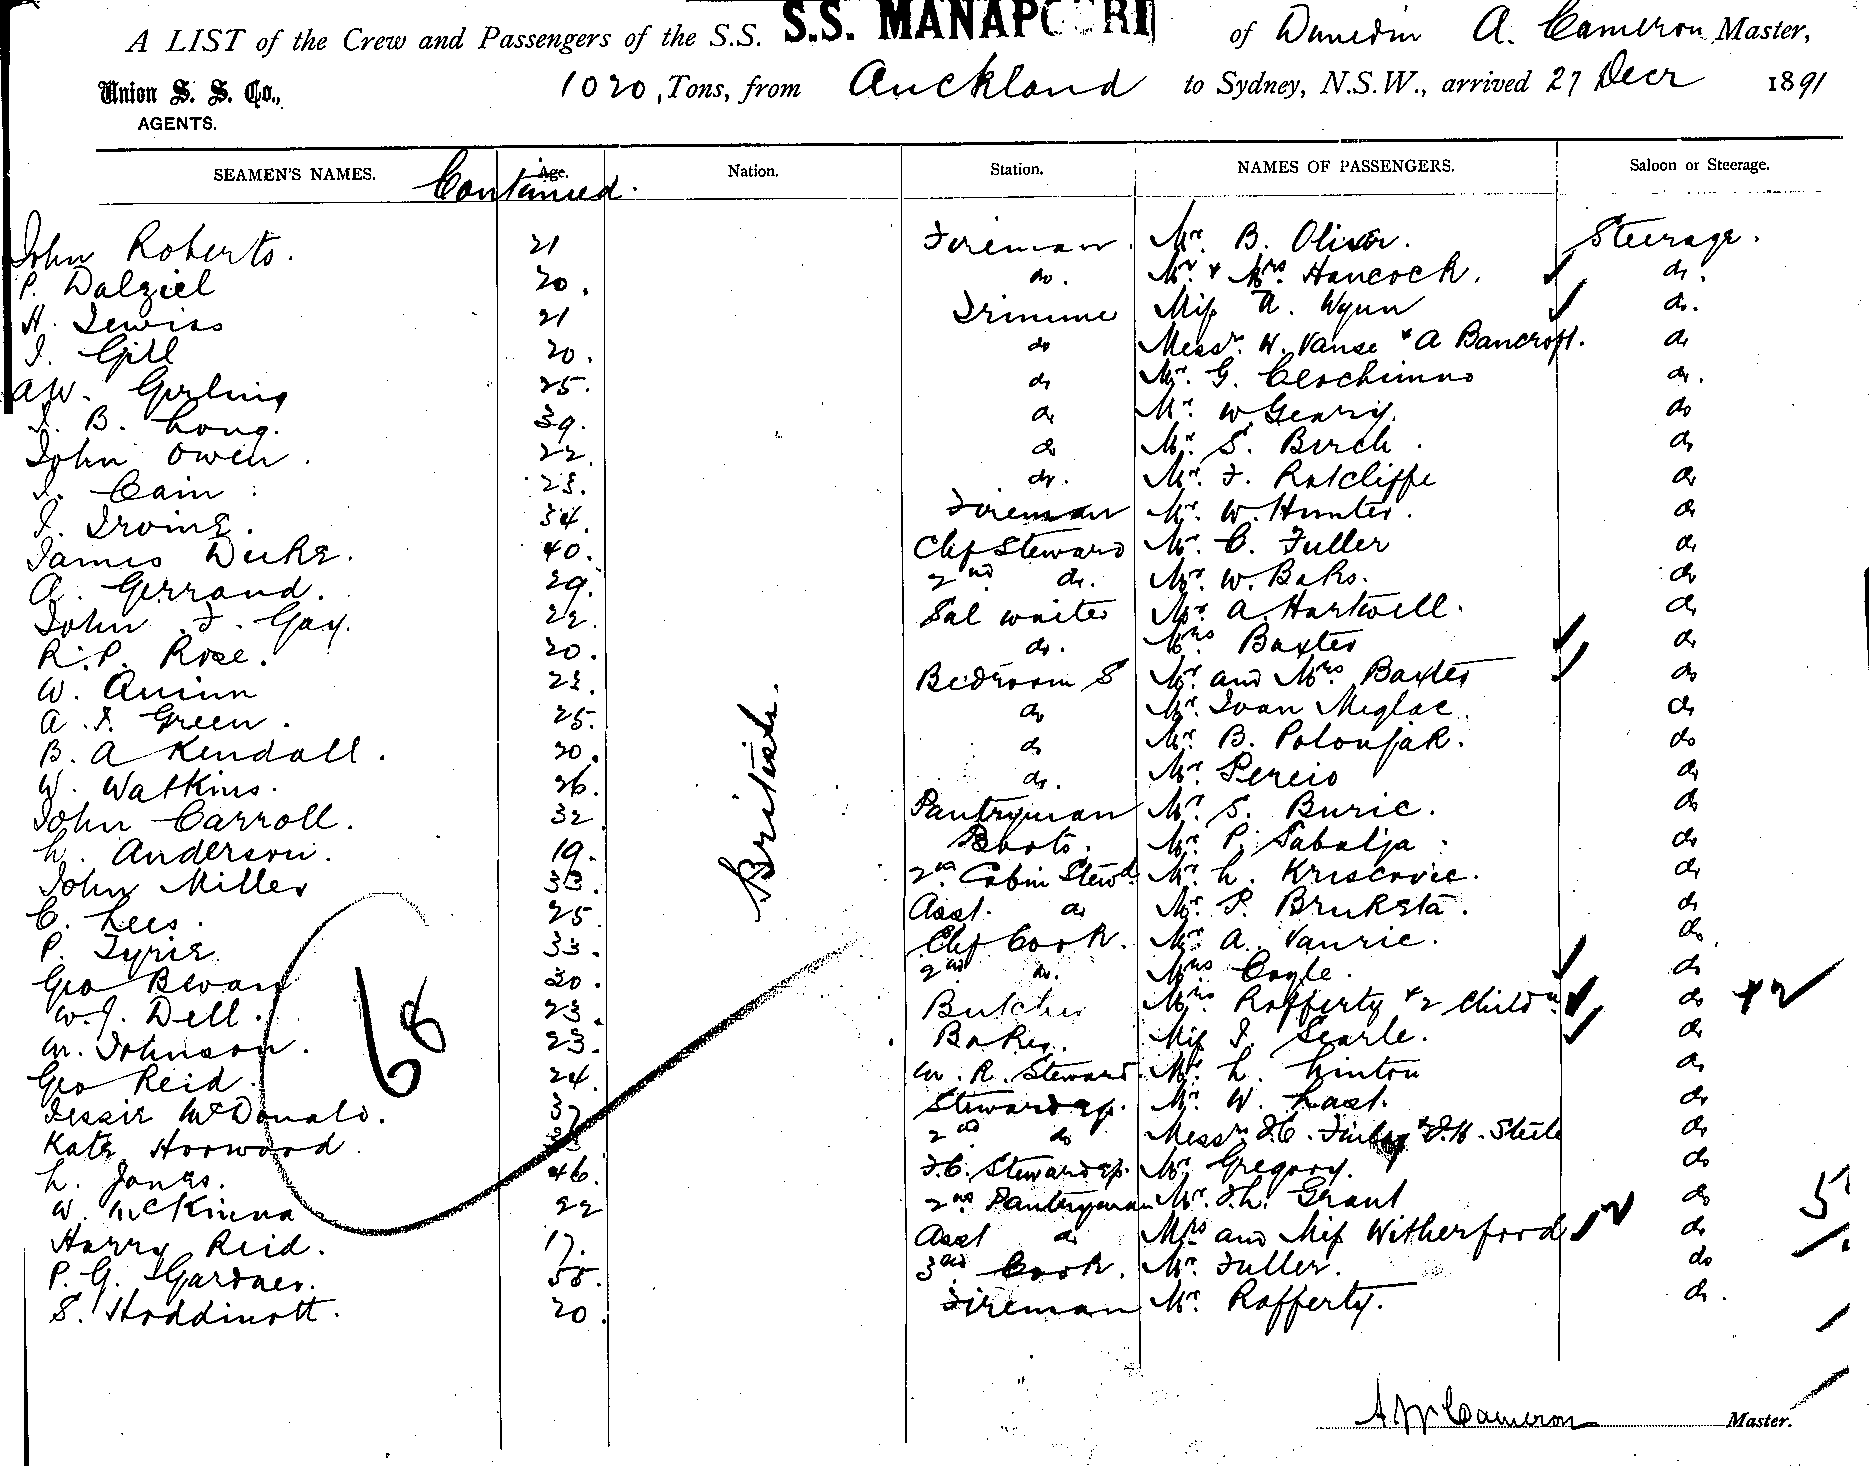 A LIST of the Crew and Passengers of the S.S. S.S. MANAPOURI of Dunedin A. Cameron, Master,
Union S. S. Co., 1020, Tons, from Auckland to Sydney, N.S.W., arrived 27 Decr 1891
AGENTS.
SEAMEN'S NAMES. Age. Nation. Station. NAMES OF PASSENGERS. Saloon or Steerage.
Continued.
John Roberts. 21 Fireman. Mr. B. Oliver. Steerage.
P. Dalziel 20. do. Mr. & Mrs Hancock. do.
H. Lewiss 21 Trimme Miss A. Wynn do.
J. Gill 20. do Messr. W. Vanse & A Bancroft. do
A.W. Girling 25. do Mr. G. do.
B. Long. 39. do Mr. W Geary. do
John Owen. 22. do Mr. S. Birch. do
Cain 23. do. Mr. F. Ratcliffe do
J. Irving. 34. Fireman Mr. W. Hunter. do
James Duke. 40. Chf Steward Mr. C. Fuller do
A. Gerrand. 29. 2nd do. Mr. W. Baks. do
John F. Gay. 22. Sal waiter Mr A. Hartwell. do
R.P. Rose. 20. do. Mrs Baxter do
W. Quinn 23. Bedroom S Mr. and Mrs. Baxter do
A. J. Green. 25. do Mr. Ivan Miglac. do
B. A Kendall. 20. do Mr B. Polonjak. do
W. Watkins. 26. do. Mr. Percio do
John Carroll. 32 Pantryman Mr. S. Buric. do
L. Anderson. 19. Boots. Mr. P. Sabalja. do
John Miller 33. 2nd Cabin Stewd. Mr. L. Kriscovic. do
C. Lees. 25 Asst. do Mr. P. Bruketa. do
P. Tyrie 33. Chf Cook. Mr A. Vanric. do.
Geo Bevan 30. 2nd do. Mrs Coyle. do
W.J. Dell. 23. Butcher Mrs Rafferty & 2 Childn. do +2
68
British.
M. Johnson. 23. Baker. Miss J. Searle. do
Geo Reid. 24. M. R. Steward. Mr. L. Linton do
Jessie McDonald. 37 Stewardess. Mr. W. Last. do
Kate Horwood. 2nd do Messr. & J.H. Steele do
L. Jones. 46. F.C. Stewardess. Mr Gregory. do
W. McKinna 22 2nd Pantryman Mr. Grant do 5
Harry Reid. 17. Asst do Mrs and Miss Witherford 2 do
P. G. Gardner. 55. 3rd Cook. Mr. Fuller. do
S. Hoddinott. 20. Fireman Mr. Rafferty. do.
A W Cameron Master.